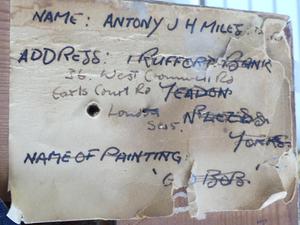 NAME: ANTONY J H MILES
ADDRESS: 1 RUFFORD BANK
36. West Cromwell Rd
Earls Court Rd YEADON
London NR LEEDS
SW5. YORKS
NAME OF PAINTING
BOB'